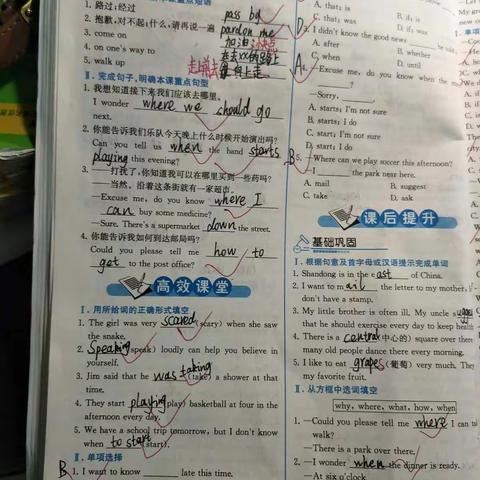 1. 路过;经过 pass by
2. 抱歉,对不起;什么,请再说一遍 pardon me
3. come on 加油;快点
4. on one's way to 在去……的路上
5. walk up 走上前去
Ⅱ. 完成句子,明确本课重点句型
1. 我想知道接下来我们应该去哪里。
I wonder where we should go
next.
2. 你能告诉我们乐队今天晚上什么时候开始演出吗?
Can you tell us when the band starts
playing this evening?
3. ——打扰了,你知道我可以在哪里买到一些药吗?
——当然。沿着这条街就有一家超市。
—Excuse me, do you know where I
can buy some medicine?
—Sure. There's a supermarket down the street.
4. 你能告诉我如何到达邮局吗?
Could you please tell me how to
get to the post office?
高效课堂
Ⅰ. 用所给词的正确形式填空
1. The girl was very scared (scare) when she saw
the snake.
2. Speaking (speak) loudly can help you believe in
yourself.
3. Jim said that he was taking (take) a shower at that
time.
4. They start playing (play) basketball at four in the
afternoon every day.
5. We have a school trip tomorrow, but I don't know
when to start (start).
Ⅱ. 单项选择
B 1. I want to know ______ late this time.
A. that; is B. if; is
C. that; was D. if; was
D 3. I didn't know the good news ______ he told
A. after B. whether
C. when D. until
A 4. —Excuse me, do you know when the
______?
—Sorry, ______.
A. starts; I'm not sure
B. starts; I do
C. start; I'm not sure
D. start; I do
B 5. —Where can we play soccer this afternoon?
—I ______ the park near here.
A. mail B. suggest
C. take D. ask
课后提升
基础巩固
Ⅰ. 根据句意及首字母或汉语提示完成单词
1. Shandong is in the east of China.
2. I want to mail the letter to my mother,
don't have a stamp.
3. My little brother is often ill. My uncle
that he should exercise every day to keep health
4. There is a central (中心的) square over there
many old people dance there every morning.
5. I like to eat grapes (葡萄) very much. They
my favorite fruit.
Ⅱ. 从方框中选词填空
why, where, what, how, when
1. —Could you please tell me where I can
walk?
—There is a park over there.
2. —I wonder when the dinner is ready.
—At six o'clock.